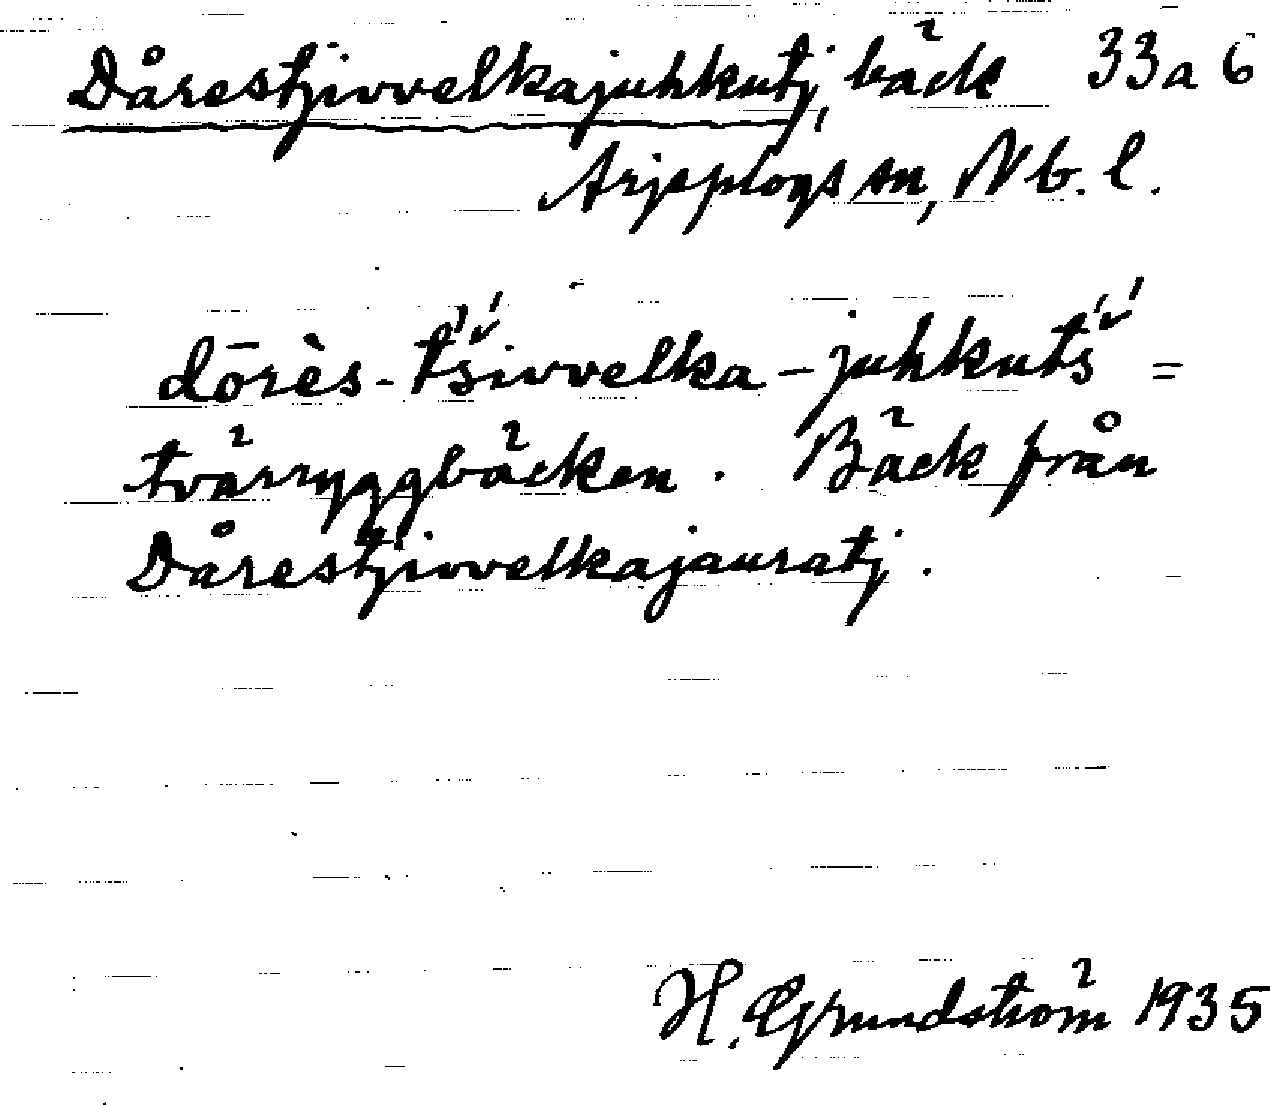 Dårestjivvelkajuhkutj, bäck 33a 6
Arjeplogs sn, Nb. l.
dōrès-t́š́ivvelka-juhkut́š́ =
tvärryggbäcken. Bäck från
Dårestjivvelkajauratj.
H. Grundström 1935